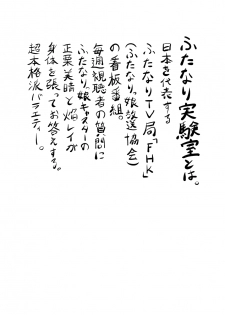 ふたなり実験室とは。
日本を代表する
ふたなりTV局「FHK」
(ふたなり娘放送協会)
の看板番組。
毎週視聴者の質問に
ふたなり娘キャスターの
正菜美晴と焔レイが
身体を張ってお答えする。
超本格派バラエティー。